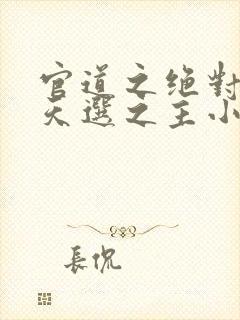 官道之绝對
天選之王小
長侃